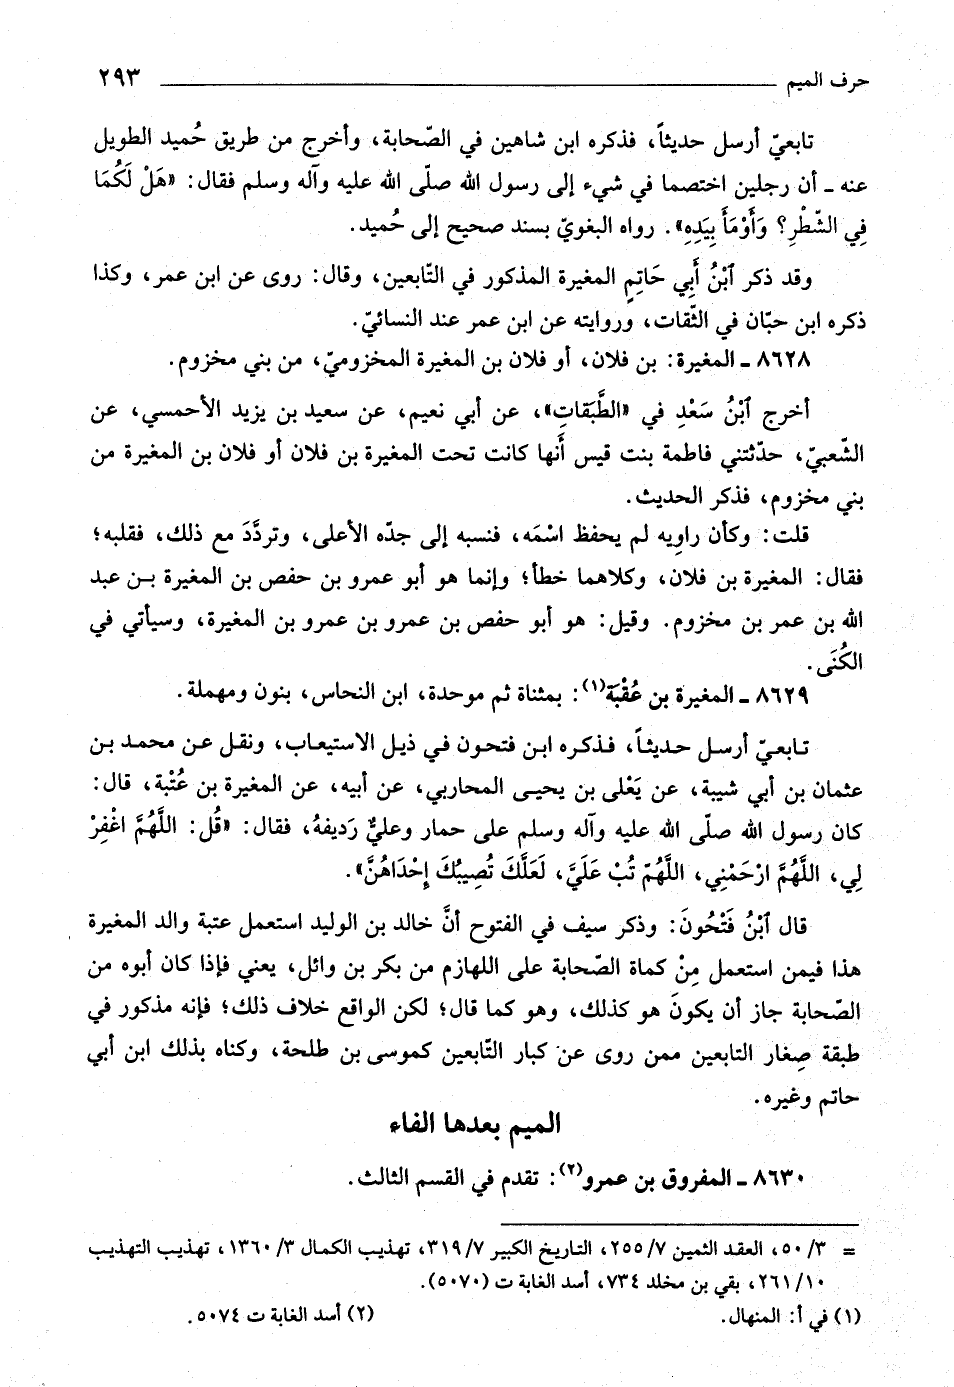 حرف الميم ٢٩٣
تابعيّ أرسل حديثاً، فذكره ابن شاهين في الصّحابة، وأخرج من طريق حُميد الطويل
عنه ـ أن رجلين اختصما في شيء إلى رسول الله صلّى الله عليه وآله وسلم فقال: «هَلْ لَكُمَا
فِي الشَّطْرِ؟ وَأَوْمَأَ بِيَدِهِ». رواه البغويّ بسند صحيح إلى حُميد.
وقد ذكر ٱبْنُ أَبِي حَاتِمٍ المغيرة المذكور في التّابعين، وقال: روى عن ابن عمر، وكذا
ذكره ابن حبّان في الثّقات، وروايته عن ابن عمر عند النسائيّ.
٨٦٢٨ ـ المغيرة: بن فلان، أو فلان بن المغيرة المخزوميّ، من بني مخزوم.
أخرج ٱبْنُ سَعْدِ في «الطَّبَقَاتِ»، عن أبي نعيم، عن سعيد بن يزيد الأحمسي، عن
الشّعبيّ، حدّثتني فاطمة بنت قيس أَنها كانت تحت المغيرة بن فلان أو فلان بن المغيرة من
بني مخزوم، فذكر الحديث.
قلت: وكأن راوِيه لم يحفظ اسْمَه، فنسبه إلى جدّه الأعلى، وتردَّدَ مع ذلك، فقلبه؛
فقال: المغيرة بن فلان، وكلاهما خطأ؛ وإنما هو أبو عمرو بن حفص بن المغيرة بـن عبد
الله بن عمر بن مخزوم. وقيل: هو أبو حفص بن عمرو بن عمرو بن المغيرة، وسيأتي في
الكُنَى.
٨٦٢٩ ـ المغيرة بن عُقْبَة(١): بمثناة ثم موحدة، ابن النحاس، بنون ومهملة.
تـابعيّ أرسل حـديثـاً، فـذكـره ابـن فتحـون فـي ذيـل الاستيعـاب، ونقـل عـن محمـد بـن
عثمان بن أبي شيبة، عن يَعْلى بن يحيـى المحاربي، عن أبيه، عن المغيرة بن عُتْبة، قال:
كان رسول الله صلّى الله عليه وآله وسلم على حمار وعليٌّ رَديفهُ، فقال: «قُل: اللَّهُمَّ اغْفِرْ
لِي، اللَّهُمَّ ارْحَمْنِي، اللَّهُمّ تُبْ عَلَيَّ، لَعَلَّكَ تُصِيبُكَ إِحْدَاهُنَّ».
قال ٱبْنُ فَتْحُونَ: وذكر سيف في الفتوح أنَّ خالد بن الوليد استعمل عتبة والد المغيرة
هذا فيمن استعمل مِنْ كماة الصّحابة على اللهازم من بكر بن وائل، يعني فإذا كان أبوه من
الصّحابة جاز أن يكونَ هو كذلك، وهو كما قال؛ لكن الواقع خلاف ذلك؛ فإنه مذكور في
طبقة صِغار التابعين ممن روى عن كبار التّابعين كموسى بن طلحة، وكناه بذلك ابن أبي
حاتم وغيره.
الميم بعدها الفاء
٨٦٣٠ ـ المفروق بن عمرو(٢): تقدم في القسم الثالث.
= ٥٠/٣، العقد الثمين ٢٥٥/٧، التاريخ الكبير ٣١٩/٧، تهذيب الكمال ١٣٦٠/٣، تهذيب التهذيب
٢٦١/١٠، بقي بن مخلد ٧٣٤، أسد الغابة ت (٥٠٧٠).
(١) في أ: المنهال. (٢) أسد الغابة ت ٥٠٧٤.